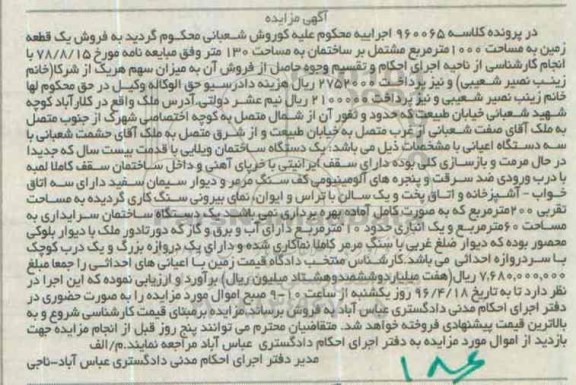 آگهی مزایده
در پرونده کلاسه ۹۶۰۰۶۵ اجراییه محکوم علیه کوروش شعبانی محکوم گردید به فروش یک قطعه
زمین به مساحت ۱۰۰۰مترمربع مشتمل بر ساختمان به مساحت ۱۳۰ متر وفق مبایعه نامه مورخ ۷۸/۸/۱۵ با
انجام کارشناسی از ناحیه اجرای احکام و تقسیم وجوه حاصل از فروش آن به میزان سهم هریک از شرکا(خانم
زینب نصیر شعیبی) و نیز پرداخت ۲۷۵۲۰۰۰ ریال هزینه دادرسیو حق الوکاله وکیل در حق محکوم لها
خانم زینب نصیر شعیبی و نیز پرداخت ۲۱۰۰۰۰۰ ریال نیم عشر دولتی.آدرس ملک واقع در کلارآباد کوچه
شهید شعبانی خیابان طبیعت که حدود و ثغور آن از شمال متصل به کوچه اختصاصی شهرک از جنوب متصل
به ملک آقای صفت شعبانی از غرب متصل به خیابان طبیعت و از شرق متصل به ملک آقای حشمت شعبانی با
سه دستگاه اعیانی با مشخصات ذیل می باشد: یک دستگاه ساختمان ویلایی با قدمت بیست سال که جدیدا
در حال مرمت و بازسازی کلی بوده دارای سقف ایرانیتی با خرپای آهنی و داخل ساختمان سقف کاملا لمبه
با درب ورودی ضد سرقت و پنجره های آلومینیومی کف سنگ مرمر و دیوار سیمان سفید دارای سه اتاق
خواب - آشپزخانه و اتاق پخت و یک سالن با تراس و ایوان، نمای بیرونی سنگ کاری گردیده به مساحت
تقربی ۲۰۰مترمربع که به صورت کامل آماده بهره برداری نمی باشد- یک دستگاه ساختمان سرایداری به
مساحت ۶۰مترمربع و یک انباری حدود ۱۰ مترمربع دارای آب و برق و گاز که دورتادور ملک با دیوار بلوکی
محصور بوده که دیوار ضلع غربی با سنگ مرمر کاملا نماکاری شده و دارای یک دروازه بزرگ و یک درب کوچک
با سردروازه احداثی می باشد.کارشناس منتخب دادگاه قیمت زمین با اعیانی های احداثی را جمعا مبلغ
۷.۶۸۰.۰۰۰.۰۰۰ ریال(هفت میلیاردوششصدوهشتاد میلیون ریال) برآورد و ارزیابی نموده که این اجرا در
نظر دارد تا به تاریخ ۹۶/۴/۱۸ روز یکشنبه از ساعت ۱۰-۹ صبح اموال مورد مزایده را به صورت حضوری در
دفتر اجرای احکام مدنی دادگستری عباس آباد به فروش برساند.مزایده برمبنای قیمت کارشناسی شروع و به
بالاترین قیمت پیشنهادی فروخته خواهد شد. متقاضیان محترم می توانند پنج روز قبل از انجام مزایده جهت
بازدید از اموال مورد مزایده به دفتر اجرای احکام دادگستری عباس آباد مراجعه نمایند.م/الف
مدیر دفتر اجرای احکام مدنی دادگستری عباس آباد-ناجی